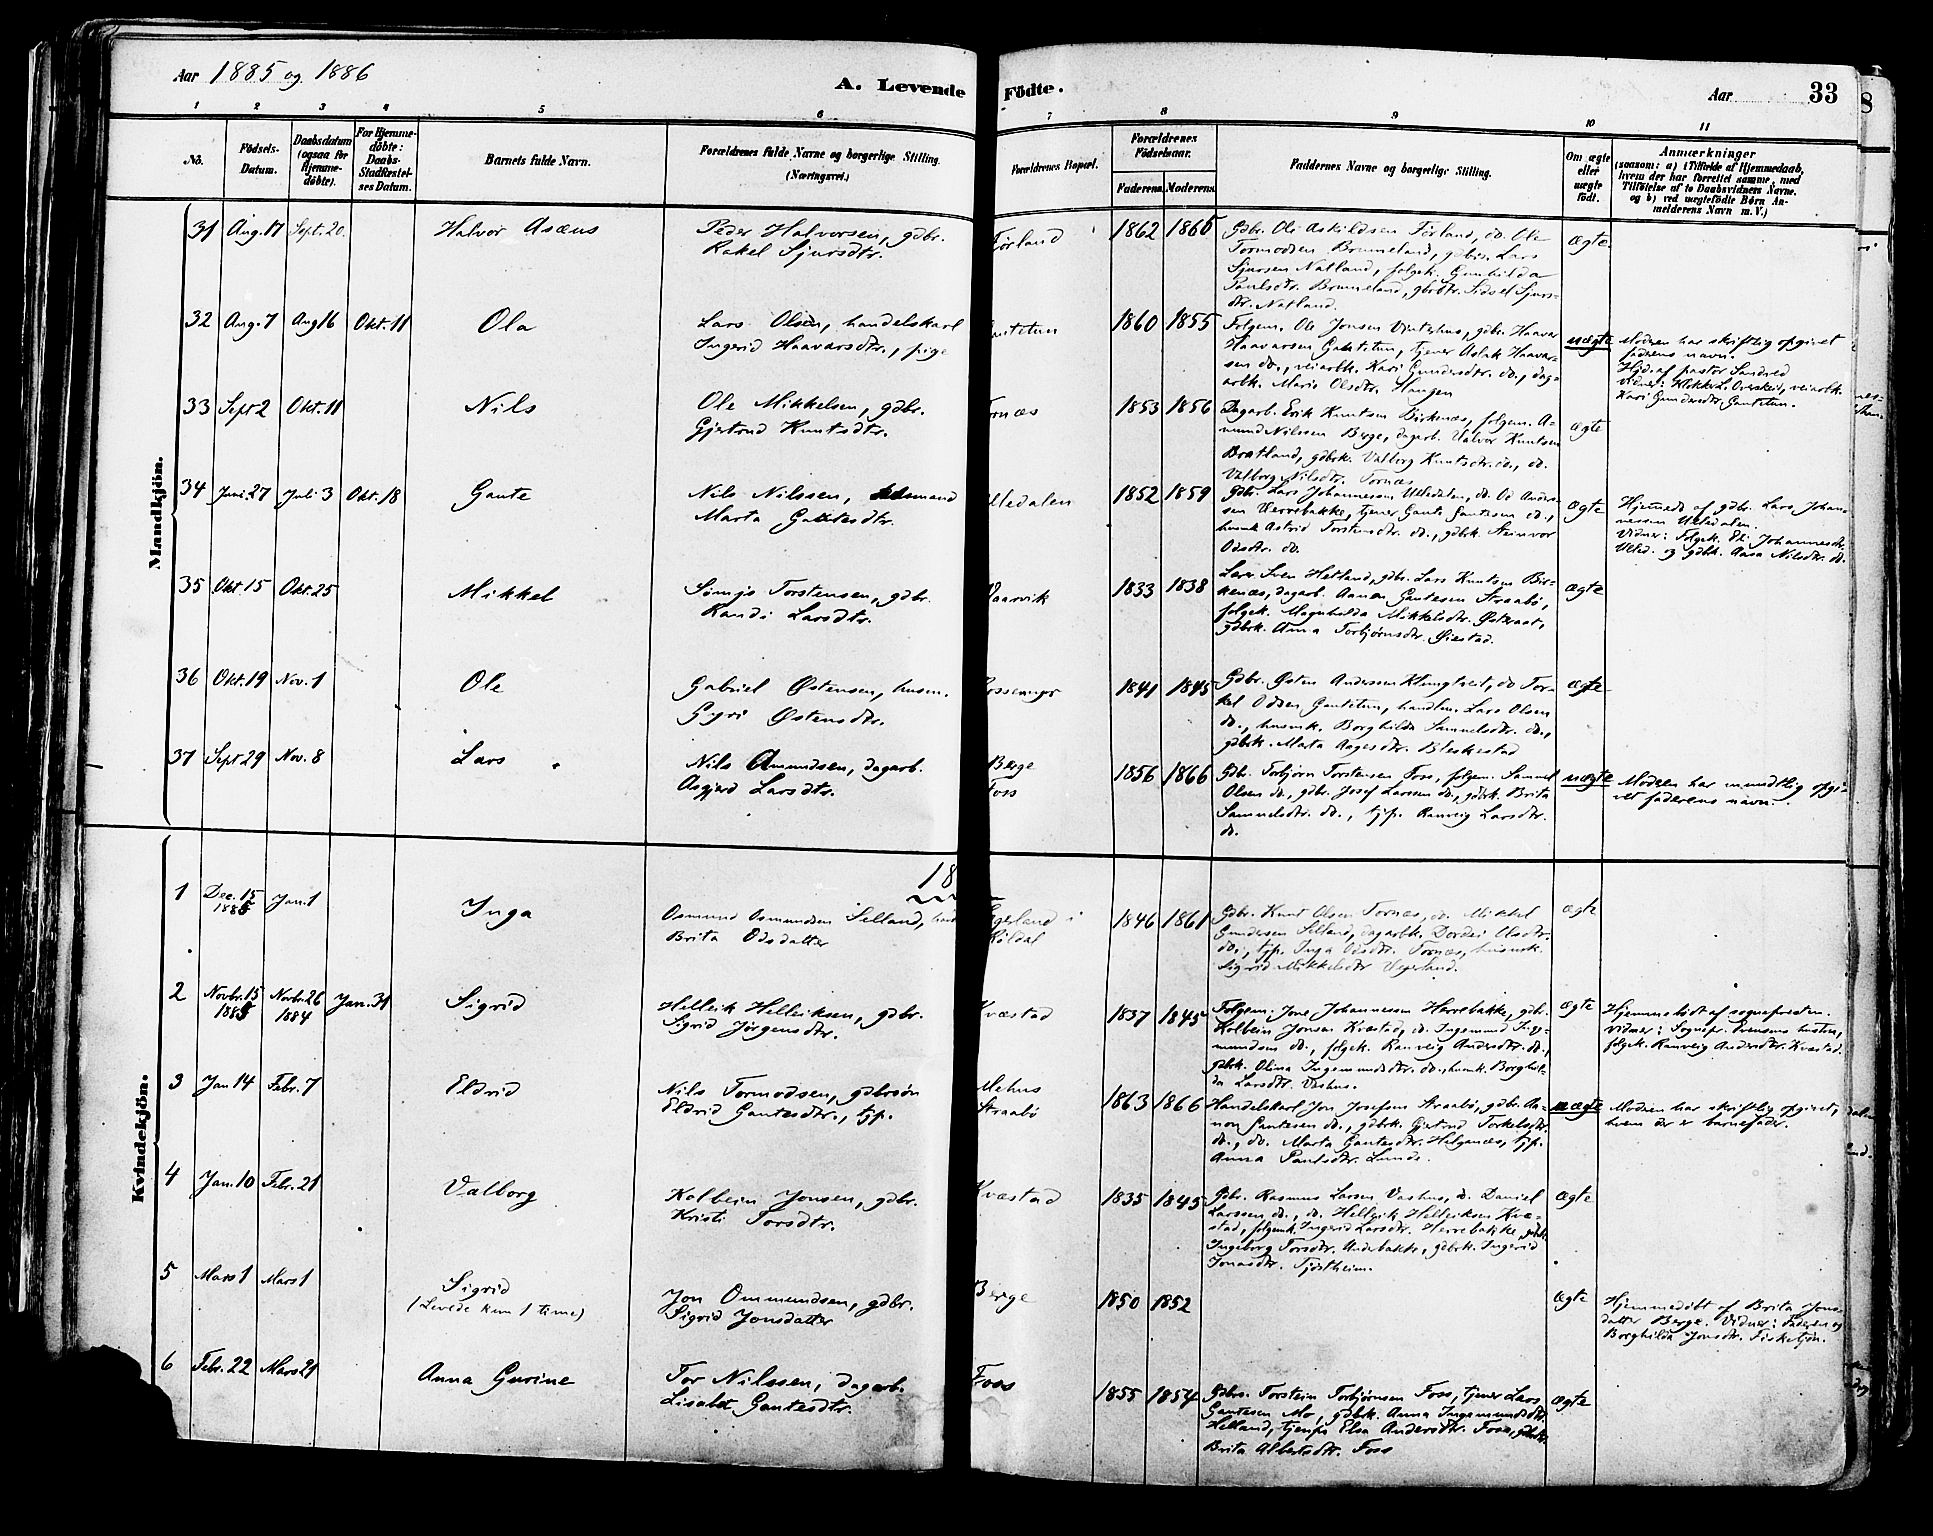 Aar 1885 og 1886
A. Levende Födte.
Aar 33
1 2 3 4 5 6 7 8 9 10 11
No.
Födsels-
Datum.
Daabsdatum
(ogsaa for
Hjemme-
döbte).
For Hjemme-
döbte:
Daabs-
Stadfæstel-
ses Datum.
Barnets fulde Navn.
Forældrenes fulde Navne og borgerlige Stilling.
(Næringsvei.)
Forældrenes Bopæl.
Forældrenes
Födselsaar.
Faderens. Moderens.
Faddernes Navne og borgerlige Stilling.
Om ægte
eller
uægte
födt.
Anmærkninger
(saasom: a) i Tilfælde af Hjemmedaab,
hvem der har forrettet samme, med
Tilföielse af to Daabsvidners Navne,
og b) ved uægtefödte Börn An-
melderens Navn m. V.)
Mandkjön.
31 Aug. 17 Sept. 20. Halvor Asæus
Peder Halvorsen, gdbr.
Rakel Sjursdtr.
Førland 1862 1865
Gdbr. Ole Askildsen Førland, do. Ole
Tormodsen Brommeland, gdbr. Lars
Sjursen Natland, følgek. Gunhilda
Paulsdtr. Brommeland, gbrdtr. Sidsel Sjurs-
dtr. Natland.
ægte
32 Aug. 7 Aug 16 Okt. 11 Ola
Lars Olsen, handelskarl
Ingerid Haavarsdtr., pige
Gautetun 1860 1855
Følgem. Ole Jonsen Vinterhus, gdbr. Haavar
Haavarsen Gautetun, tjener Aslak Haavar-
sen do., veiarbk. Kari Gundersdtr. do., dag-
arbk. Marie Olsdtr. Haugen
uægte
Modren har skriftlig opgivet
fadrens navn.
Hjd. af pastor Sandved
Vidner: Klokker L. Overskeid, veiarbk.
Kari Gundersdtr. Gautetun.
33 Sept 2 Okt. 11 Nils
Ole Mikkelsen, gdbr.
Gjertrud Knutsdtr.
Tornæs 1853 1856
Dagarb. Erik Knutsen Birkenæs, følgem. A-
mund Nilssen Berge, dagarb. Halvor Knutsen
Bratland, gdbrk. Valborg Knutsdtr. do., do.
Valborg Nilsdtr. Tornæs
ægte
34 Juni 27 Juli 3 Okt. 18 Gaute
Nils Nilssen, husmand
Marta Gautesdtr.
Ulledalen 1852 1859
Gdbr. Lars Johannessen Ulledalen, do. Od Anders-
sen Herrebakke, tjener Gaute Gautesen do.,
husmk Astrid Torstensdtr. do., gdbrk. Steinvor
Odsdtr. do.
ægte
Hjemmed. af gdbr. Lars Johan-
nessen Ulledalen.
Vidner: Følgek. Eli Johannesdtr.
Ulled. og gdbk. Aasa Nilsdtr. do.
35 Okt. 15 Okt. 25 Mikkel
Sømjo Torstensen, gdbr.
Randi Larsdtr.
Vaarvik 1833 1838
Lærer Sven Hetland, gdbr. Lars Knutsen Bir-
kenæs, dagarb. Aanon Gautesen Straabø,
følgek. Magnhilda Mikkelsdtr. Østraat,
gdbrk. Anna Torbjørnsdtr. Øiestad.
ægte
36 Okt. 19 Nov. 1 Ole
Gabriel Østensen, husm.
Gyri Østensdtr.
Fossemyr 1841 1845
Gdbr. Østen Andersen Klungtveit, do Tor-
kel Odsen Gautetun, handlm. Lars Olsen
do., husmk. Borghilda Samuelsdtr. do.,
gdbrk. Marta Aagesdtr. Bleskestad
ægte
37 Sept 29 Nov. 8 Lars
Nils Amundsen, dagarb.
Asgjerd Larsdtr.
Berge
Foss
1856 1866
Gdbr. Torbjørn Torstensen Foss, følgem. Samuel
Olsen do., gdbr. Josef Larssen do., gdbrk. Brita
Samuelsdtr. do., tjp. Ranveig Larsdtr.
do.
uægte
Modren har mundtlig opgi-
vet faderens navn.
18
Kvindekjön.
1 Dec. 15
1885
Jan. 1 Inga
Osmund Osmundsen Selland,
Brita Odsdatter
Øgerland i
Røldal
1846 1861
Gdbr. Knut Olsen Tornæs, do. Mikkel
Gundersen Selland, dagarbk. Dordei Olsdtr.
do., tjp. Inga Odsdtr. Tornæs, husmk.
Sigrid Mikkelsdtr Vegerland.
ægte
2 Novbr. 15
1885
Novbr. 26
1884
Jan. 31 Sigrid
Helleik Helleiksen, gdbr.
Sigrid Jörgensdtr.
Kvæstad 1837 1845
Følgem. Jone Johannessen Herrebakke, gdbr.
Kolbein Jonsen Kvæstad, do. Ingemund Sig-
mundsen do., følgek. Ranveig Andersdtr. do.,
gdbrk. Olina Ingemundsdtr. do., husmk. Borghil-
da Larsdtr. Vashus.
ægte
Hjemmedøbt af sognepresten.
Vidner: Sognepr. Evensens hustru,
følgek. Ranveig Andersdtr. Kvæstad.
3 Jan 14 Febr. 7 Eldrid
Nils Tormodsen, gdbrsøn
Eldrid Gautesdtr., tjp.
Mehus
Straabø
1863 1866
Handelskarl Jon Josefsen Straabø, gdbr. Aa-
non Gautesen do., gdbrk. Gjertrud Torkelsdtr.
do., do. Marta Gautesdtr. Helgenæs, tjp.
Anna Paulsdtr. Lunde.
uægte
Modren har skriftlig opgivet,
hvem der er barnefader.
4 Jan. 10 Febr. 21 Valborg
Kolbein Jonsen, gdbr.
Kristi Torsdtr.
Kvæstad 1835 1845
Gdbr. Rasmus Larsen Vashus, do. Daniel
Larssen do., do. Helleik Helleiksen Kvæ-
stad, følgemk. Ingerid Larsdtr. Herrebakke, gdbrk.
Ingeborg Torsdtr. Andebakke, gdbrk. Ingerid
Jonasdtr. Tjöstheim.
ægte
5 Mars 1 Mars 1 Sigrid
(Levede kun 1 time)
Jon Ommundsen, gdbr.
Sigrid Jonsdatter
Berge 1850 1852
ægte
Hjemmedöbt af Brita Jons-
datter Berge. Vidner: Faderen og
Borghilda Jonsdtr. Fisketjön.
6 Febr. 22 Mars 21 Anna Gurine
Tor Nilssen, dagarb.
Lisabet Gautesdtr.
Foss 1855 1854
Gdbr. Torstein Torbjørnsen Foss, tjener Lars
Gautesen Mo, gdbrk. Anna Ingemundsdtr.
Helland, tjenp. Elsa Andersdtr. Foss, gdbrk.
Brita Albertsdtr. Foss
ægte